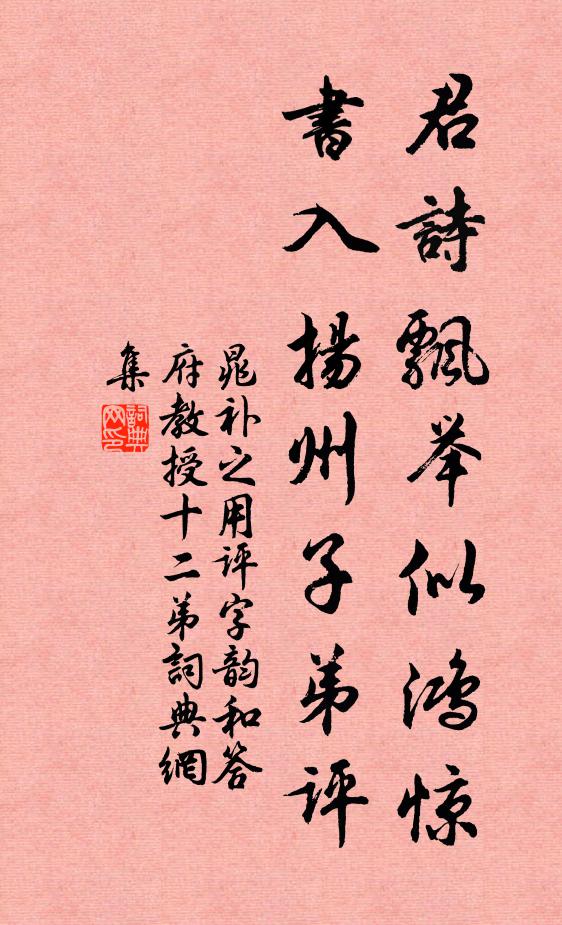 君詩飄举似鸿惊
書入揚州子弟評
晁补之用评字韵和答
府教授十二弟詞典網
集
詞典網印